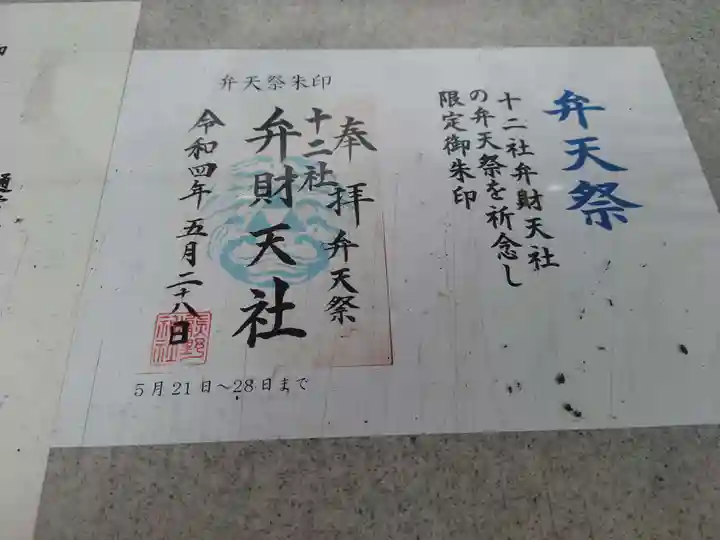 弁天祭
十二社弁財天社
の弁天祭を祈念し
限定御朱印
弁天祭朱印
奉拝 弁天祭
十二社
弁財天社
令和四年 五月二十八日
熊野
神社
5月21日～28日まで